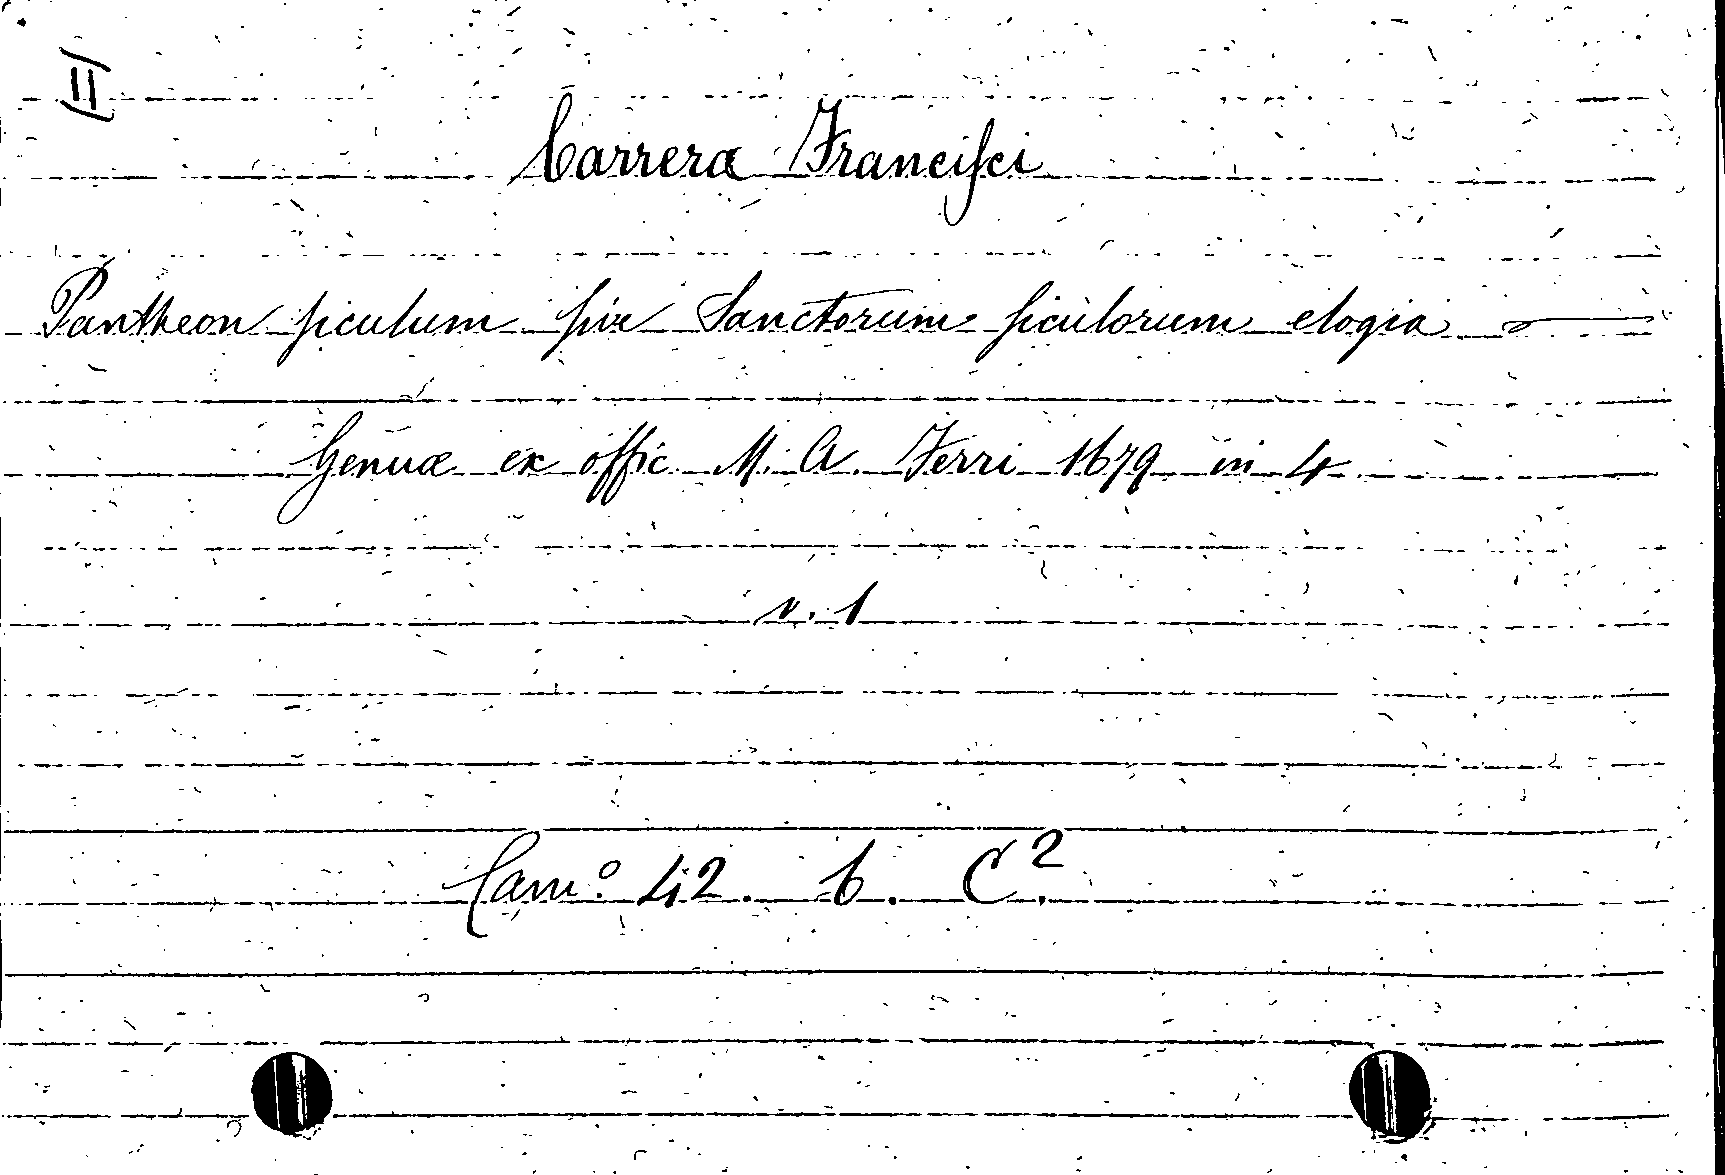 II
Carreræ Franciſci
Pantheon ſiculum ſive Sanctorum ſiculorum elogia
Genuæ ex offic. M. A. Ferri 1679 in 4
v. 1
Cam.º 42. b. C.²